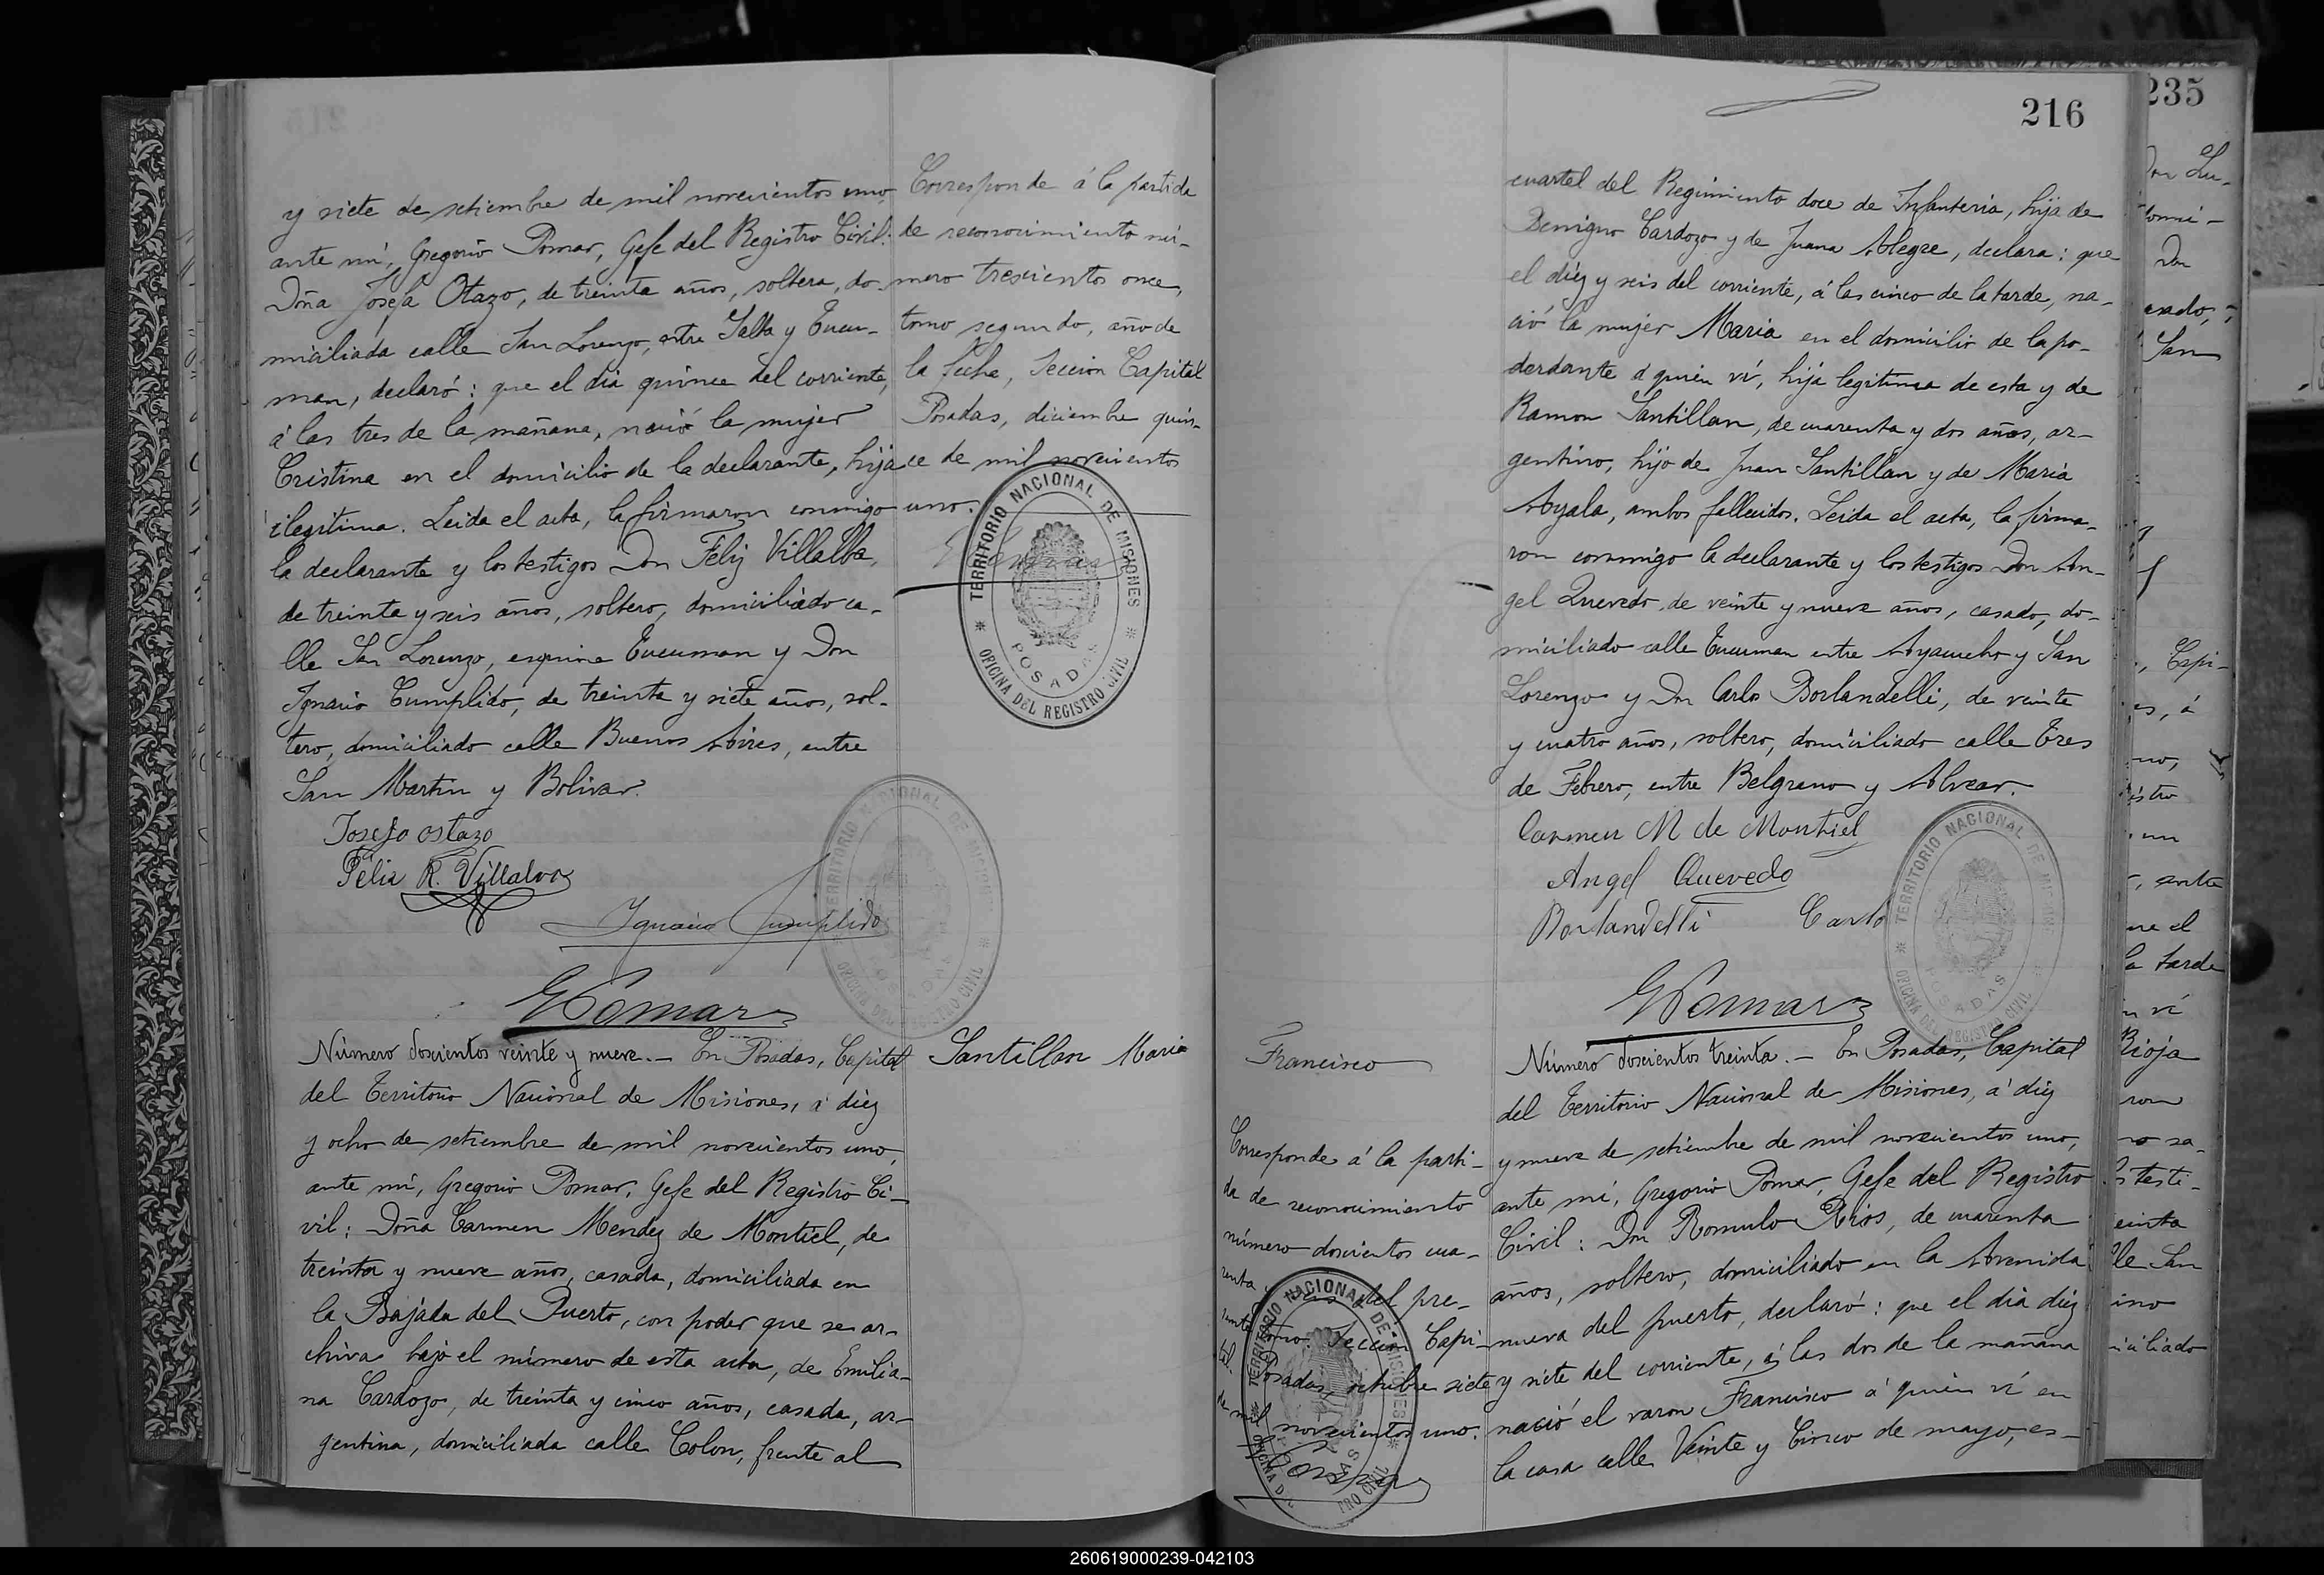 y siete de setiembre de mil novecientos uno,
ante mí, Gregorio Pomar, Gefe del Registro Civil:
Doña Josefa Otazo, de treinta años, soltera, do-
miciliada calle San Lorenzo, entre Salta y Tucu-
man, declaró: que el dia quince del corriente,
á las tres de la mañana, nació la mujer
Cristina en el domicilio de la declarante, hija
ilegitima. Leida el acta, la firmaron conmigo
la declarante y los testigos Don Feliz Villalba,
de treinta y seis años, soltero, domiciliado ca-
lle San Lorenzo, esquina Tucuman y Don
Ignacio Cumplido, de treinta y siete años, sol-
tero, domiciliado calle Buenos Aires, entre
San Martin y Bolivar.
Josefo ostazo
Felix R. Villalva
Ignacio Cumplido
GPomar
Corresponde á la partida
de reconocimiento nú-
mero trescientos once,
tomo segundo, año de
la fecha, Seccion Capital
Posadas, diciembre quin-
ce de mil novecientos
uno.
TERRITORIO NACIONAL DE MISIONES
POSADAS
OFICINA DEL REGISTRO CIVIL
TERRITORIO NACIONAL DE MISIONES
POSADAS
OFICINA DEL REGISTRO CIVIL
Número doscientos veinte y nueve.— En Posadas, Capital
del Territorio Nacional de Misiones, á diez
y ocho de setiembre de mil novecientos uno,
ante mí, Gregorio Pomar, Gefe del Registro Ci-
vil: Doña Carmen Mendez de Montiel, de
treinta y nueve años, casada, domiciliada en
la Bajada del Puerto, con poder que se ar-
chiva bajo el número de esta acta, de Emilia-
na Cardozo, de treinta y cinco años, casada, ar-
gentina, domiciliada calle Colon, frente al
Santillan Maria
216
cuartel del Regimiento doce de Infanteria, hija de
Benigno Cardozo y de Juana Alegre, declara: que
el diez y seis del corriente, á las cinco de la tarde, na-
ció la mujer Maria en el domicilio de la po-
derdante á quien ví, hija legitima de esta y de
Ramon Santillan, de cuarenta y dos años, ar-
gentino, hijo de Juan Santillan y de Maria
Ayala, ambos fallecidos. Leida el acta, la firma-
ron conmigo la declarante y los testigos Don An-
gel Quevedo, de veinte y nueve años, casado, do-
miciliado calle Tucuman entre Ayacucho y San
Lorenzo y Don Carlo Borlandelli, de veinte
y cuatro años, soltero, domiciliado calle Tres
de Febrero, entre Belgrano y Alvear.
Carmen M de Montiel
Angel Quevedo
Borlandelli Carlo
GPomar
TERRITORIO NACIONAL DE MISIONES
POSADAS
OFICINA DEL REGISTRO CIVIL
Francisco
Corresponde á la parti-
da de reconocimiento
número doscientos cua-
renta del pre-
sente tomo. Seccion Capi-
tal. Posadas, octubre siete
de mil novecientos uno.
Pomar
TERRITORIO NACIONAL DE MISIONES
Número doscientos treinta.— En Posadas, Capital
del Territorio Nacional de Misiones, á diez
y nueve de setiembre de mil novecientos uno,
ante mí, Gregorio Pomar, Gefe del Registro
Civil: Don Romulo Rios, de cuarenta
años, soltero, domiciliado en la Avenida
nueva del puerto, declaró: que el dia diez
y siete del corriente, á las dos de la mañana
nació el varon Francisco á quien ví en
la casa calle Veinte y Cinco de mayo, es-
235
Don Lu-
Don
San
Capi-
es, á
no,
istro
un
, entre
ue el
la tarde
n ví
Rioja
ron
no sa-
s testi-
einta
lle San
ino
iciliado
260619000239-042103